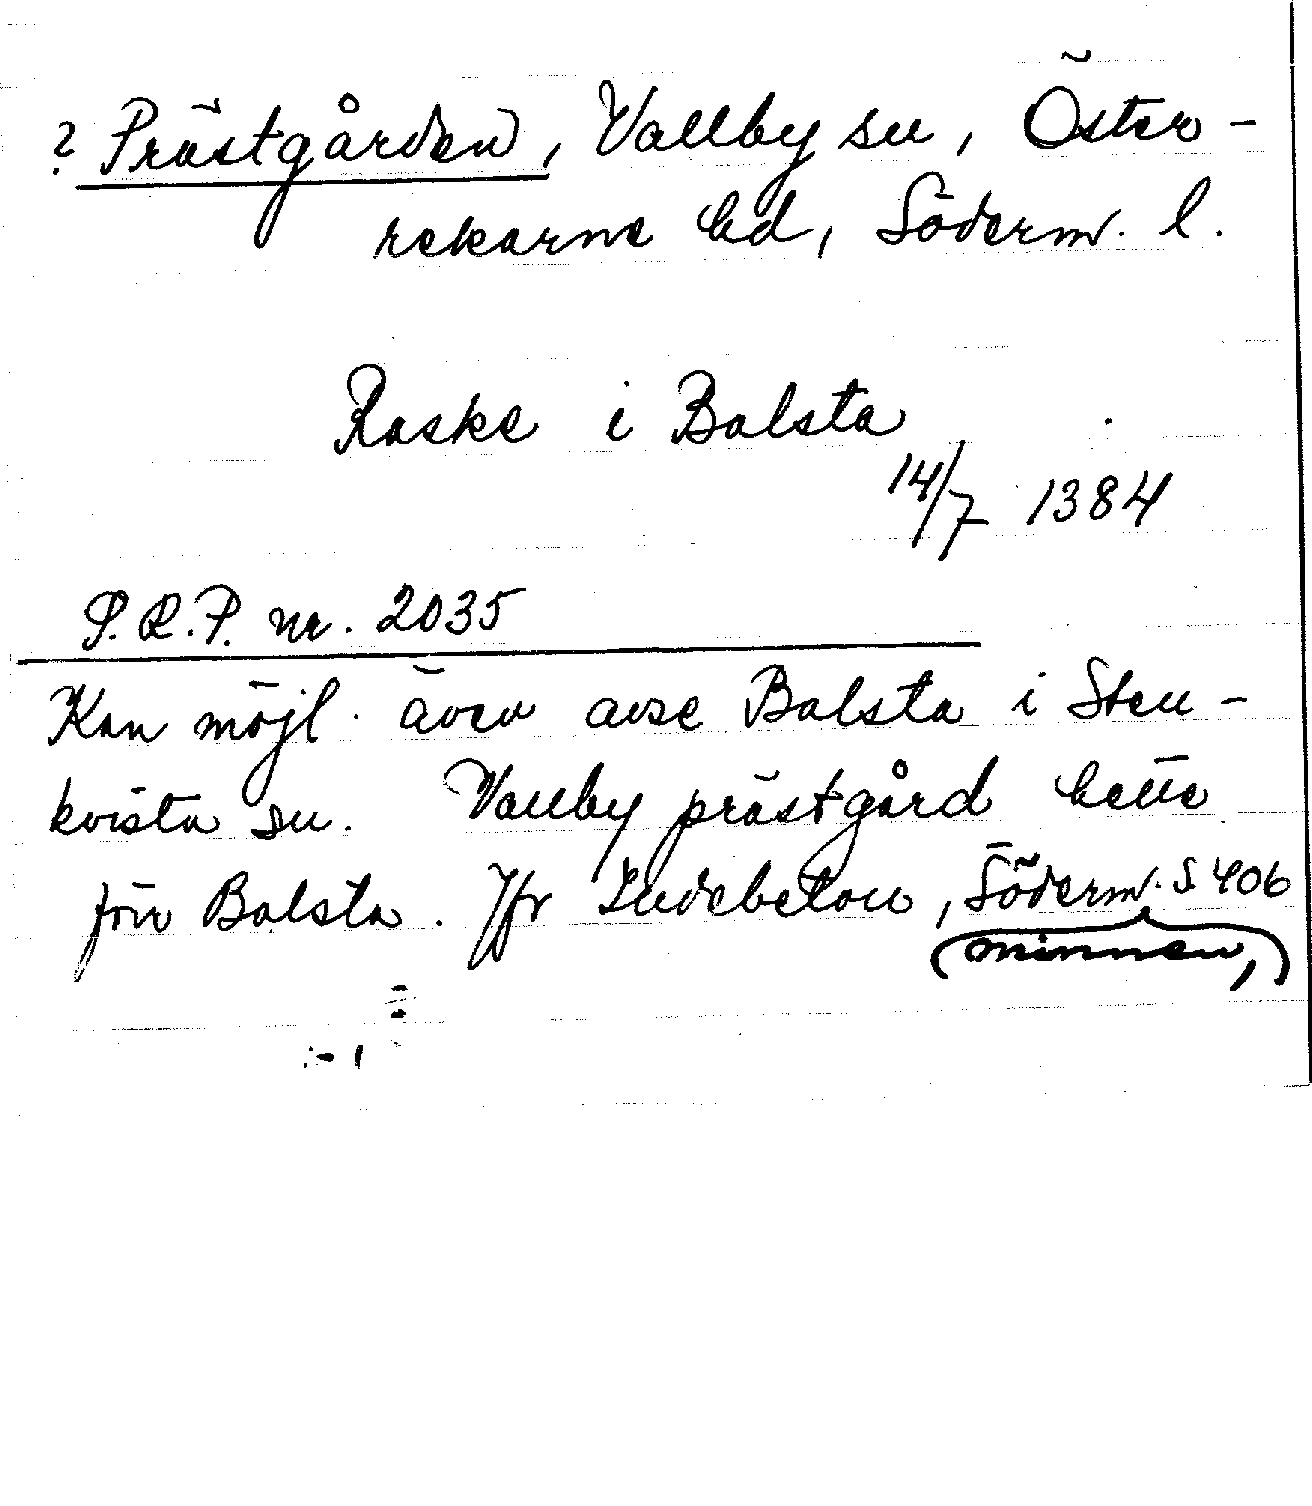 ? Prästgården, Vallby sn, Öster-
rekarne hd, Söderm. l.
Raske i Balsta
14/7 1384
S.R.P. nr. 2035
Kan möjl. även avse Balsta i Sten-
kvista sn. Vallby prästgård hette
förr Balsta. Jfr Indebetou, Söderm. s 406
(minnen,)